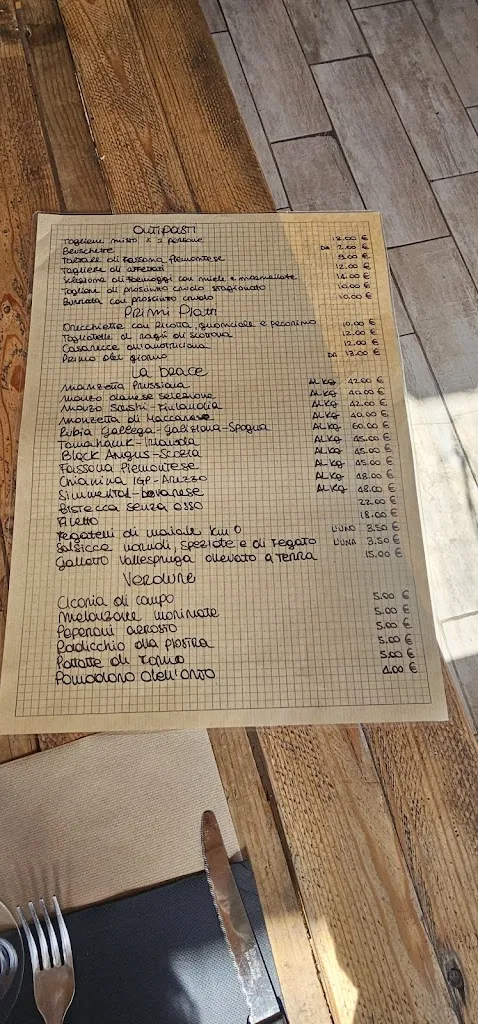 Antipasti
Tagliere misto x 2 persone 18.00 €
Bruschette DA 2.00 €
Tartare di Fassona Piemontese 9.00 €
Tagliere di affettati 12.00 €
Selezione di formaggi con miele e marmellate 14.00 €
Tagliere di prosciutto crudo stagionato 10.00 €
Burrata con prosciutto crudo 10.00 €
Primi Piatti
Orecchiette con Ricotta, guanciale e pecorino 10.00 €
Tagliatelle al ragù di scottona 12.00 €
Casarecce all'amatriciana 12.00 €
Primo del giorno DA 13.00 €
La brace
Manzetta Prussiana AL KG 42.00 €
Manzo olanese selezione AL KG 40.00 €
Manzo Sashi-Finlandia AL KG 42.00 €
Manzetta di Maccarese AL KG 40.00 €
Rubia Gallega-Galiziana-Spagna AL KG 60.00 €
Tomahawk-Irlanda AL KG 45.00 €
Black Angus-Scozia AL KG 45.00 €
Fassona Piemontese AL KG 45.00 €
Chianina IGP-Arezzo AL KG 48.00 €
Simmental-bavarese AL KG 48.00 €
Bistecca senza osso 22.00 €
Filetto 18.00 €
Fegatelli di maiale km 0 L'UNO 3.50 €
Salsicce normali, speziate e di fegato L'UNA 3.50 €
Galletto Vallespluga allevato a terra 15.00 €
Verdure
Cicoria di campo 5.00 €
Melanzane marinate 5.00 €
Peperoni arrosto 5.00 €
Radicchio alla piastra 5.00 €
Patate al forno 5.00 €
Pomodoro dell'orto 4.00 €